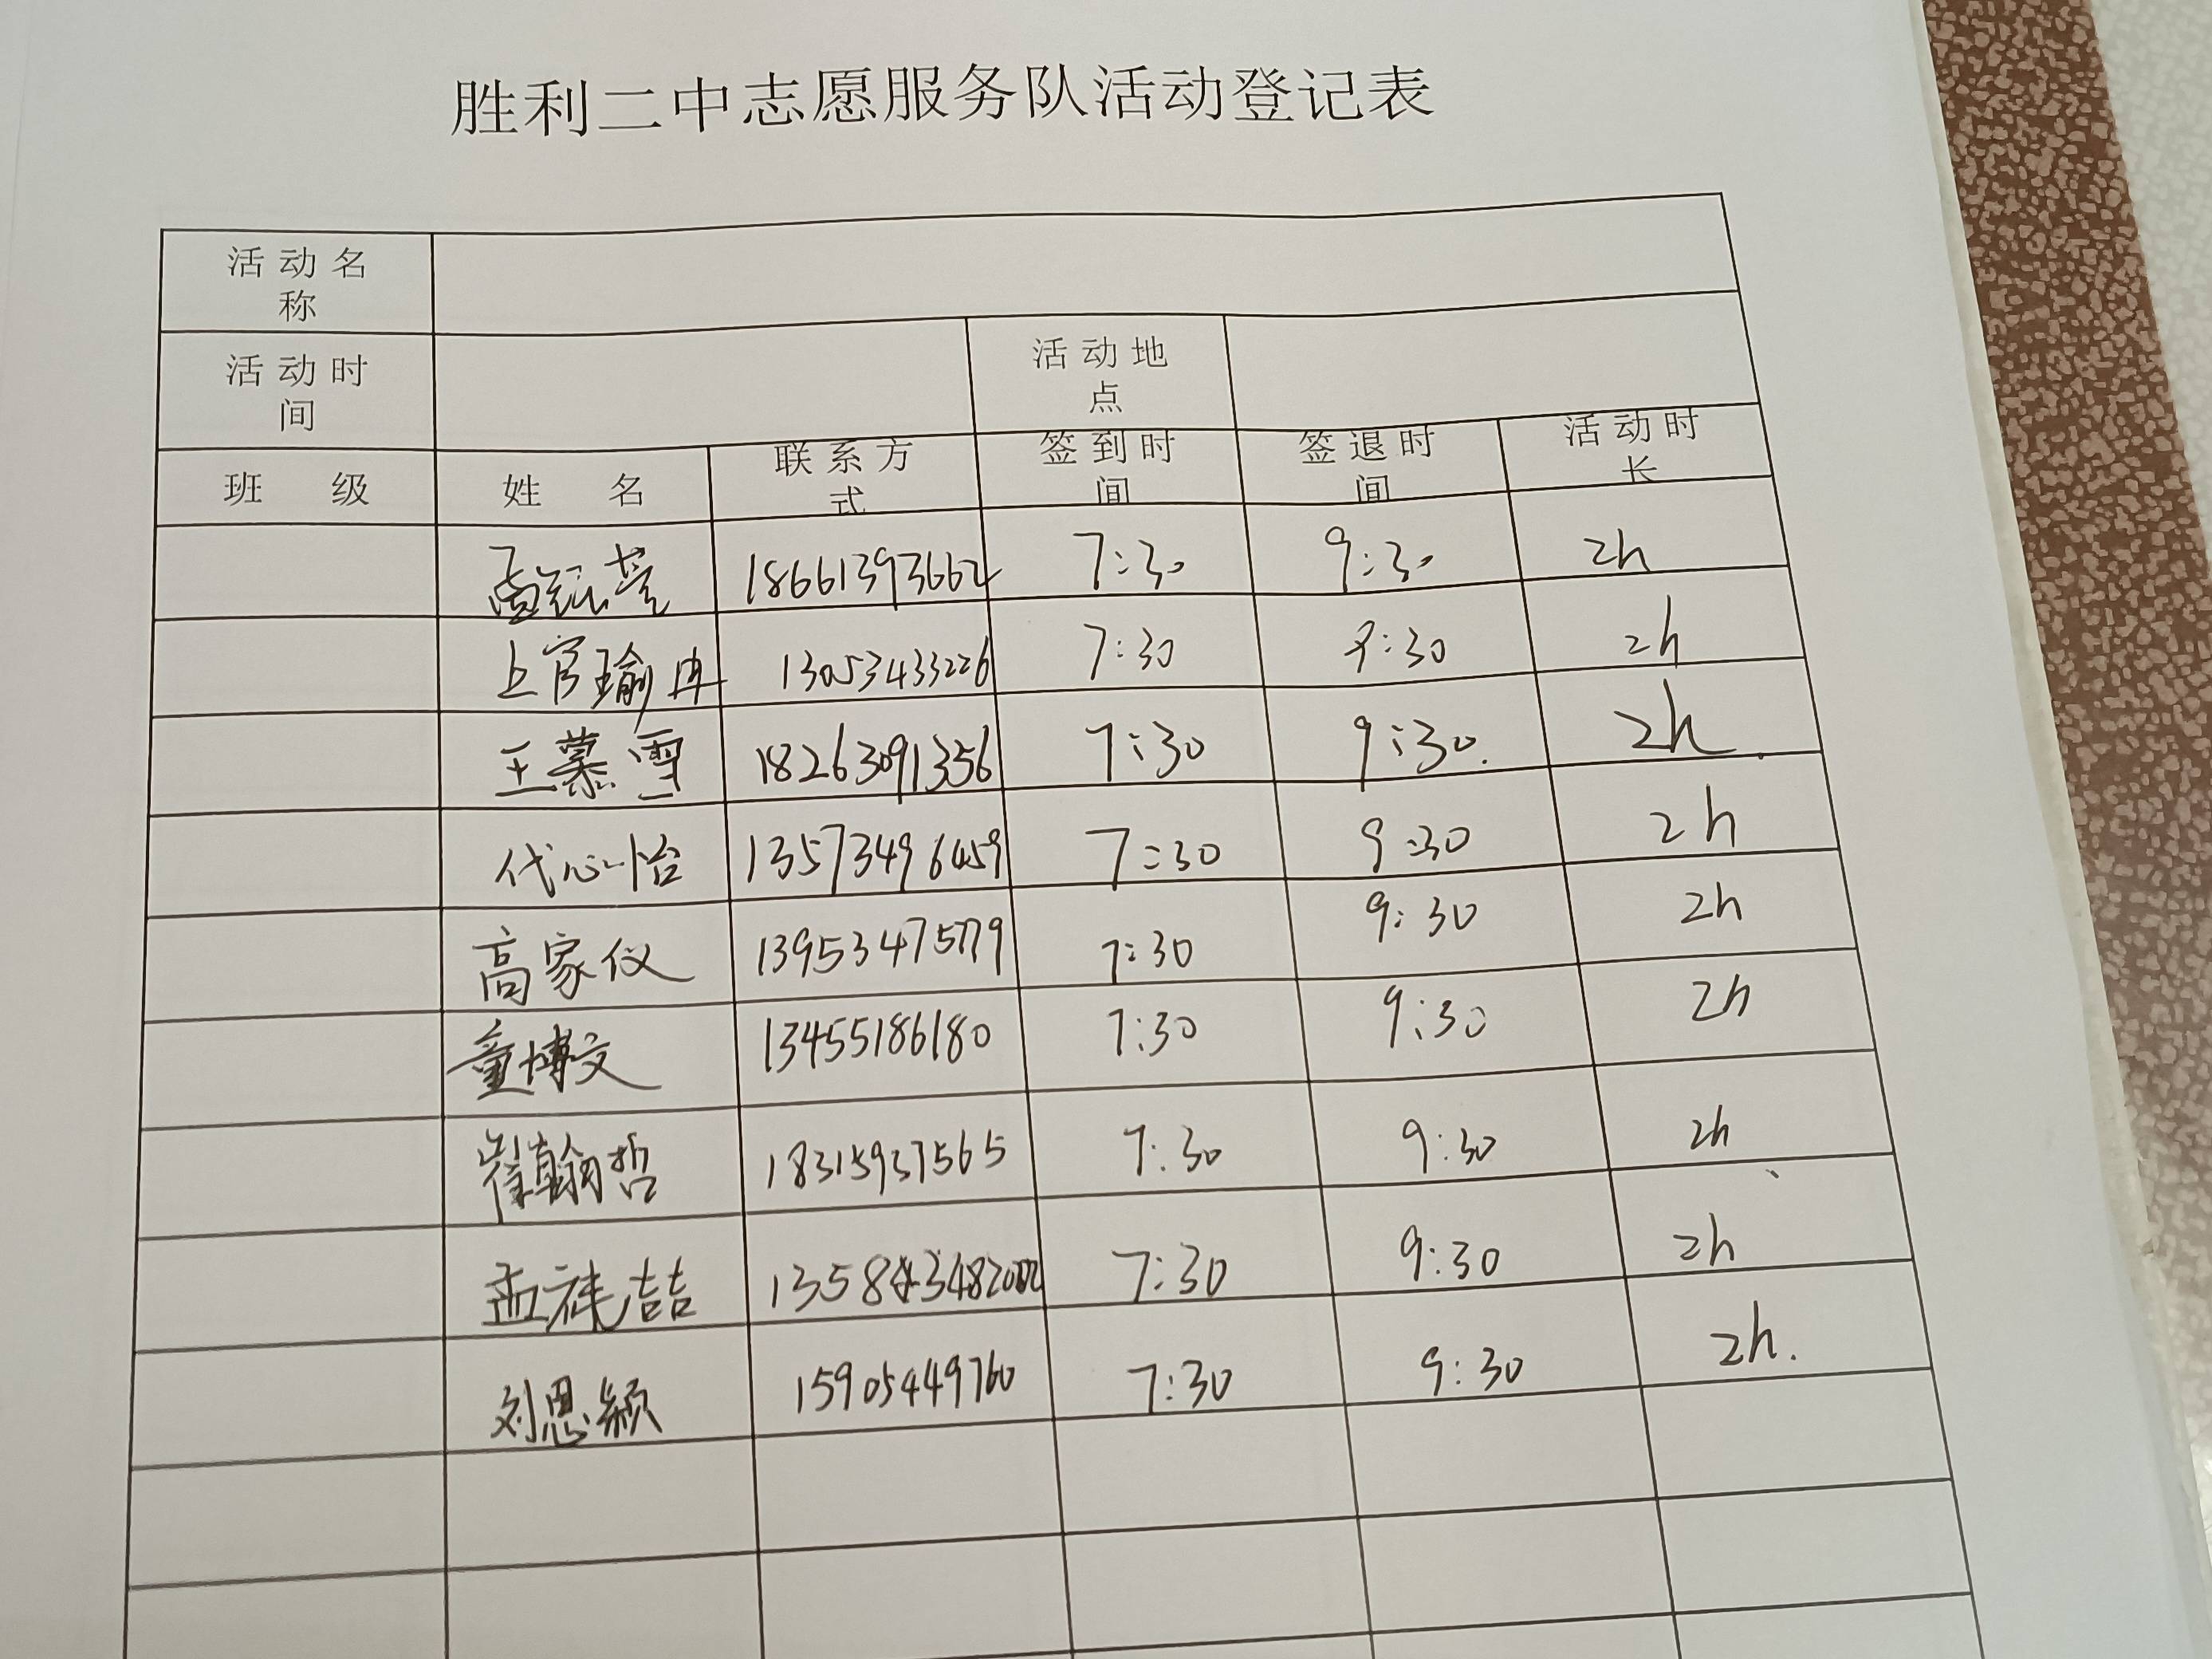 胜利二中志愿服务队活动登记表
活动名
称
活动时
间
活动地
点
班 级 姓 名 联系方式 签到时间 签退时间 活动时长
18661393662 7:30 9:30 2h
上官瑜冉 13053433226 7:30 9:30 2h
王慕雪 18263091356 7:30 9:30. 2h
代心怡 13573496459 7:30 9:30 2h
高家仪 13953475779 7:30 9:30 2h
童博文 13455186180 7:30 9:30 2h
崔翰哲 18315937565 7:30 9:30 2h
孟祥喆 7:30 9:30 2h
刘思颖 15905449760 7:30 9:30 2h.